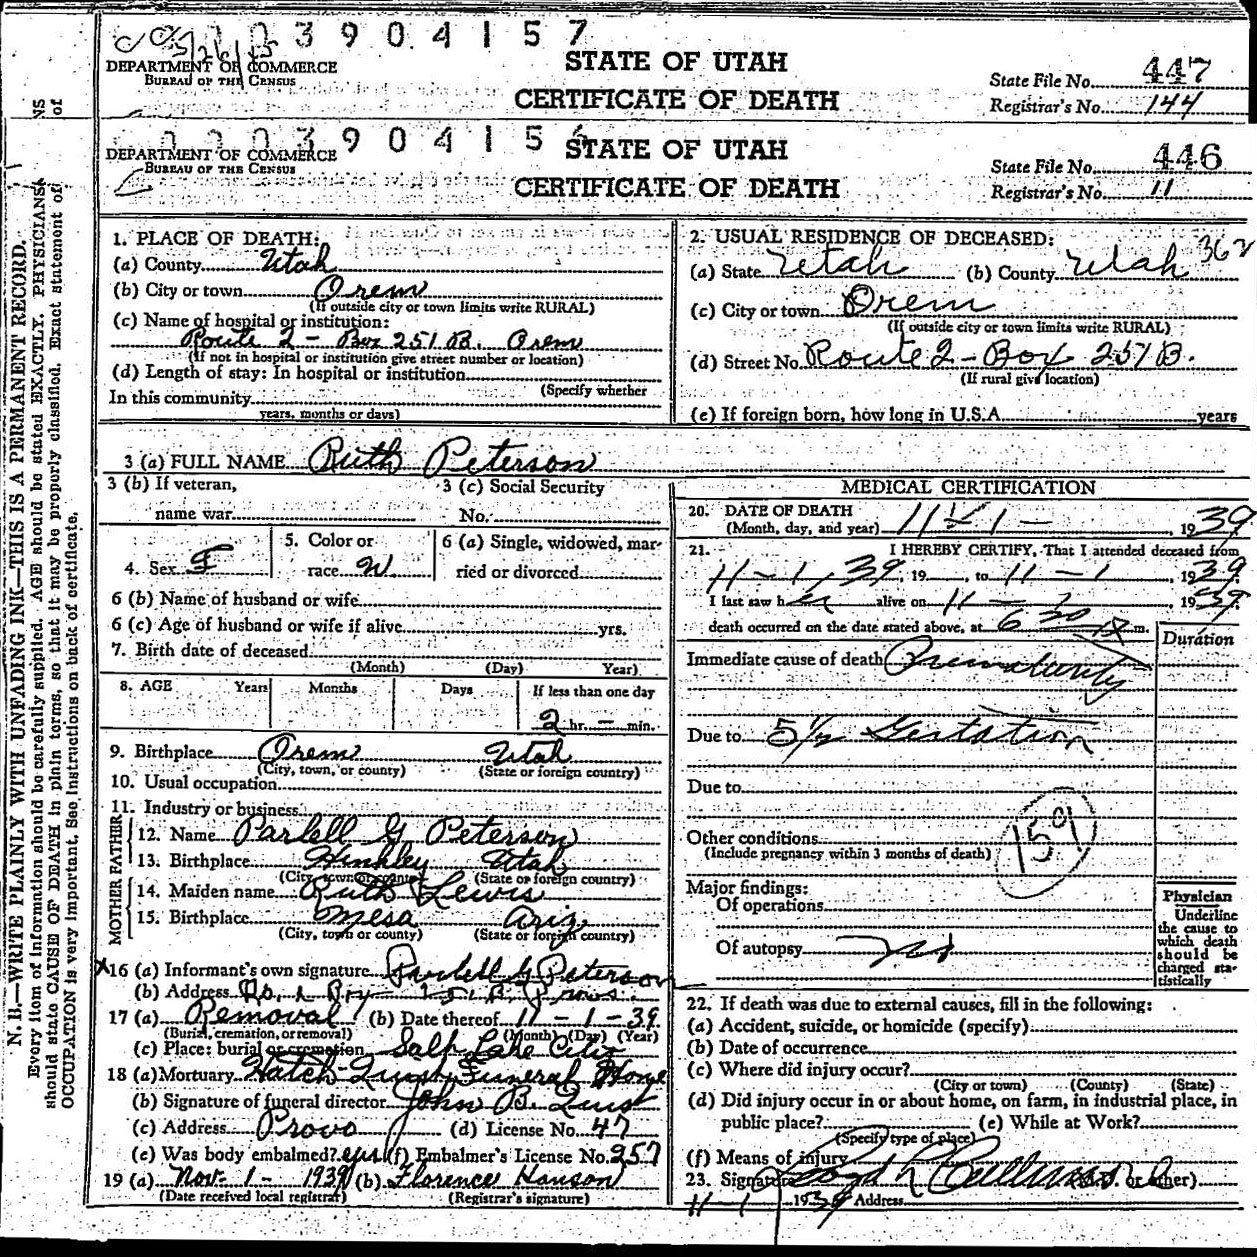 0003904157
DEPARTMENT OF COMMERCE
BUREAU OF THE CENSUS
STATE OF UTAH
CERTIFICATE OF DEATH
State File No. 447
Registrar's No. 144
0003904156
DEPARTMENT OF COMMERCE
BUREAU OF THE CENSUS
STATE OF UTAH
CERTIFICATE OF DEATH
State File No. 446
Registrar's No. 11
N. B.—WRITE PLAINLY WITH UNFADING INK—THIS IS A PERMANENT RECORD.
Every item of information should be carefully supplied. AGE should be stated EXACTLY. PHYSICIANS
should state CAUSE OF DEATH in plain terms, so that it may be properly classified. Exact statement of
OCCUPATION is very important. See instructions on back of certificate.
1. PLACE OF DEATH:
(a) County Utah
(b) City or town Orem
(If outside city or town limits write RURAL)
(c) Name of hospital or institution:
Route 2 - Box 251 B. Orem
(If not in hospital or institution give street number or location)
(d) Length of stay: In hospital or institution
(Specify whether
In this community
years, months or days)
2. USUAL RESIDENCE OF DECEASED: 362
(a) State Utah (b) County Utah
(c) City or town Orem
(If outside city or town limits write RURAL)
(d) Street No. Route 2 - Box 251 B.
(If rural give location)
(e) If foreign born, how long in U.S.A. years
3 (a) FULL NAME Ruth Peterson
3 (b) If veteran,
name war
3 (c) Social Security
No.
4. Sex F
5. Color or
race W
6 (a) Single, widowed, mar-
ried or divorced
6 (b) Name of husband or wife
6 (c) Age of husband or wife if alive yrs.
7. Birth date of deceased
(Month) (Day) Year)
8. AGE Years Months Days If less than one day
2 hr. — min.
9. Birthplace Orem Utah
(City, town, or county) (State or foreign country)
10. Usual occupation
11. Industry or business
FATHER
12. Name Parlell G Peterson
13. Birthplace Hinkley Utah
(City, town or county) (State or foreign country)
MOTHER
14. Maiden name Ruth Lewis
15. Birthplace Mesa Ariz
(City, town or county) (State or foreign country)
X16 (a) Informant's own signature Parlell G Peterson
(b) Address Box 251 B. Provo.
17 (a) Removal (b) Date thereof 11 - 1 - 39
(Burial, cremation, or removal) (Month) (Day) (Year)
(c) Place: burial or cremation Salt Lake City
18 (a) Mortuary Hatch-Zust Funeral Home
(b) Signature of funeral director John B. Zust
(c) Address Provo (d) License No. 47
(e) Was body embalmed? yes (f) Embalmer's License No. 257
19 (a) Nov. 1 - 1939 (b) Florence Hanson
(Date received local registrar) (Registrar's signature)
MEDICAL CERTIFICATION
20. DATE OF DEATH
(Month, day, and year) 11 - 1 - 1939
21. I HEREBY CERTIFY, That I attended deceased from
11 - 1, 39, 19, to 11 - 1, 1939.
I last saw her alive on 11 - 1, 1939.
death occurred on the date stated above, at 6 30 m.
Duration
Immediate cause of death Prematurity
Due to 5 1/2 Gestation
Due to
Other conditions
(Include pregnancy within 3 months of death)
159
Major findings:
Of operations
Of autopsy
Physician
Underline
the cause to
which death
should be
charged sta-
tistically
22. If death was due to external causes, fill in the following:
(a) Accident, suicide, or homicide (specify)
(b) Date of occurrence
(c) Where did injury occur?
(City or town) (County) (State)
(d) Did injury occur in or about home, on farm, in industrial place, in
public place? (e) While at Work?
(Specify type of place)
(f) Means of injury
23. Signature or other)
11-1 1939 Address